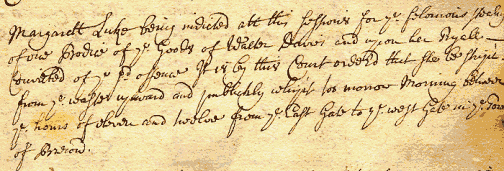 Margarett Luke being indicted att this Sessions for ye felonious stealing
of one Bodie of ye Goods of Walter Davies and upon her Tryall
Convicted of ye sd offence It is by this Court ordered that she be stript
from ye waste upward and publickly whipt too morrow Morning between
ye hours of eleven and twelve from ye East Gate to ye west Gate in ye Town
of Brecon.